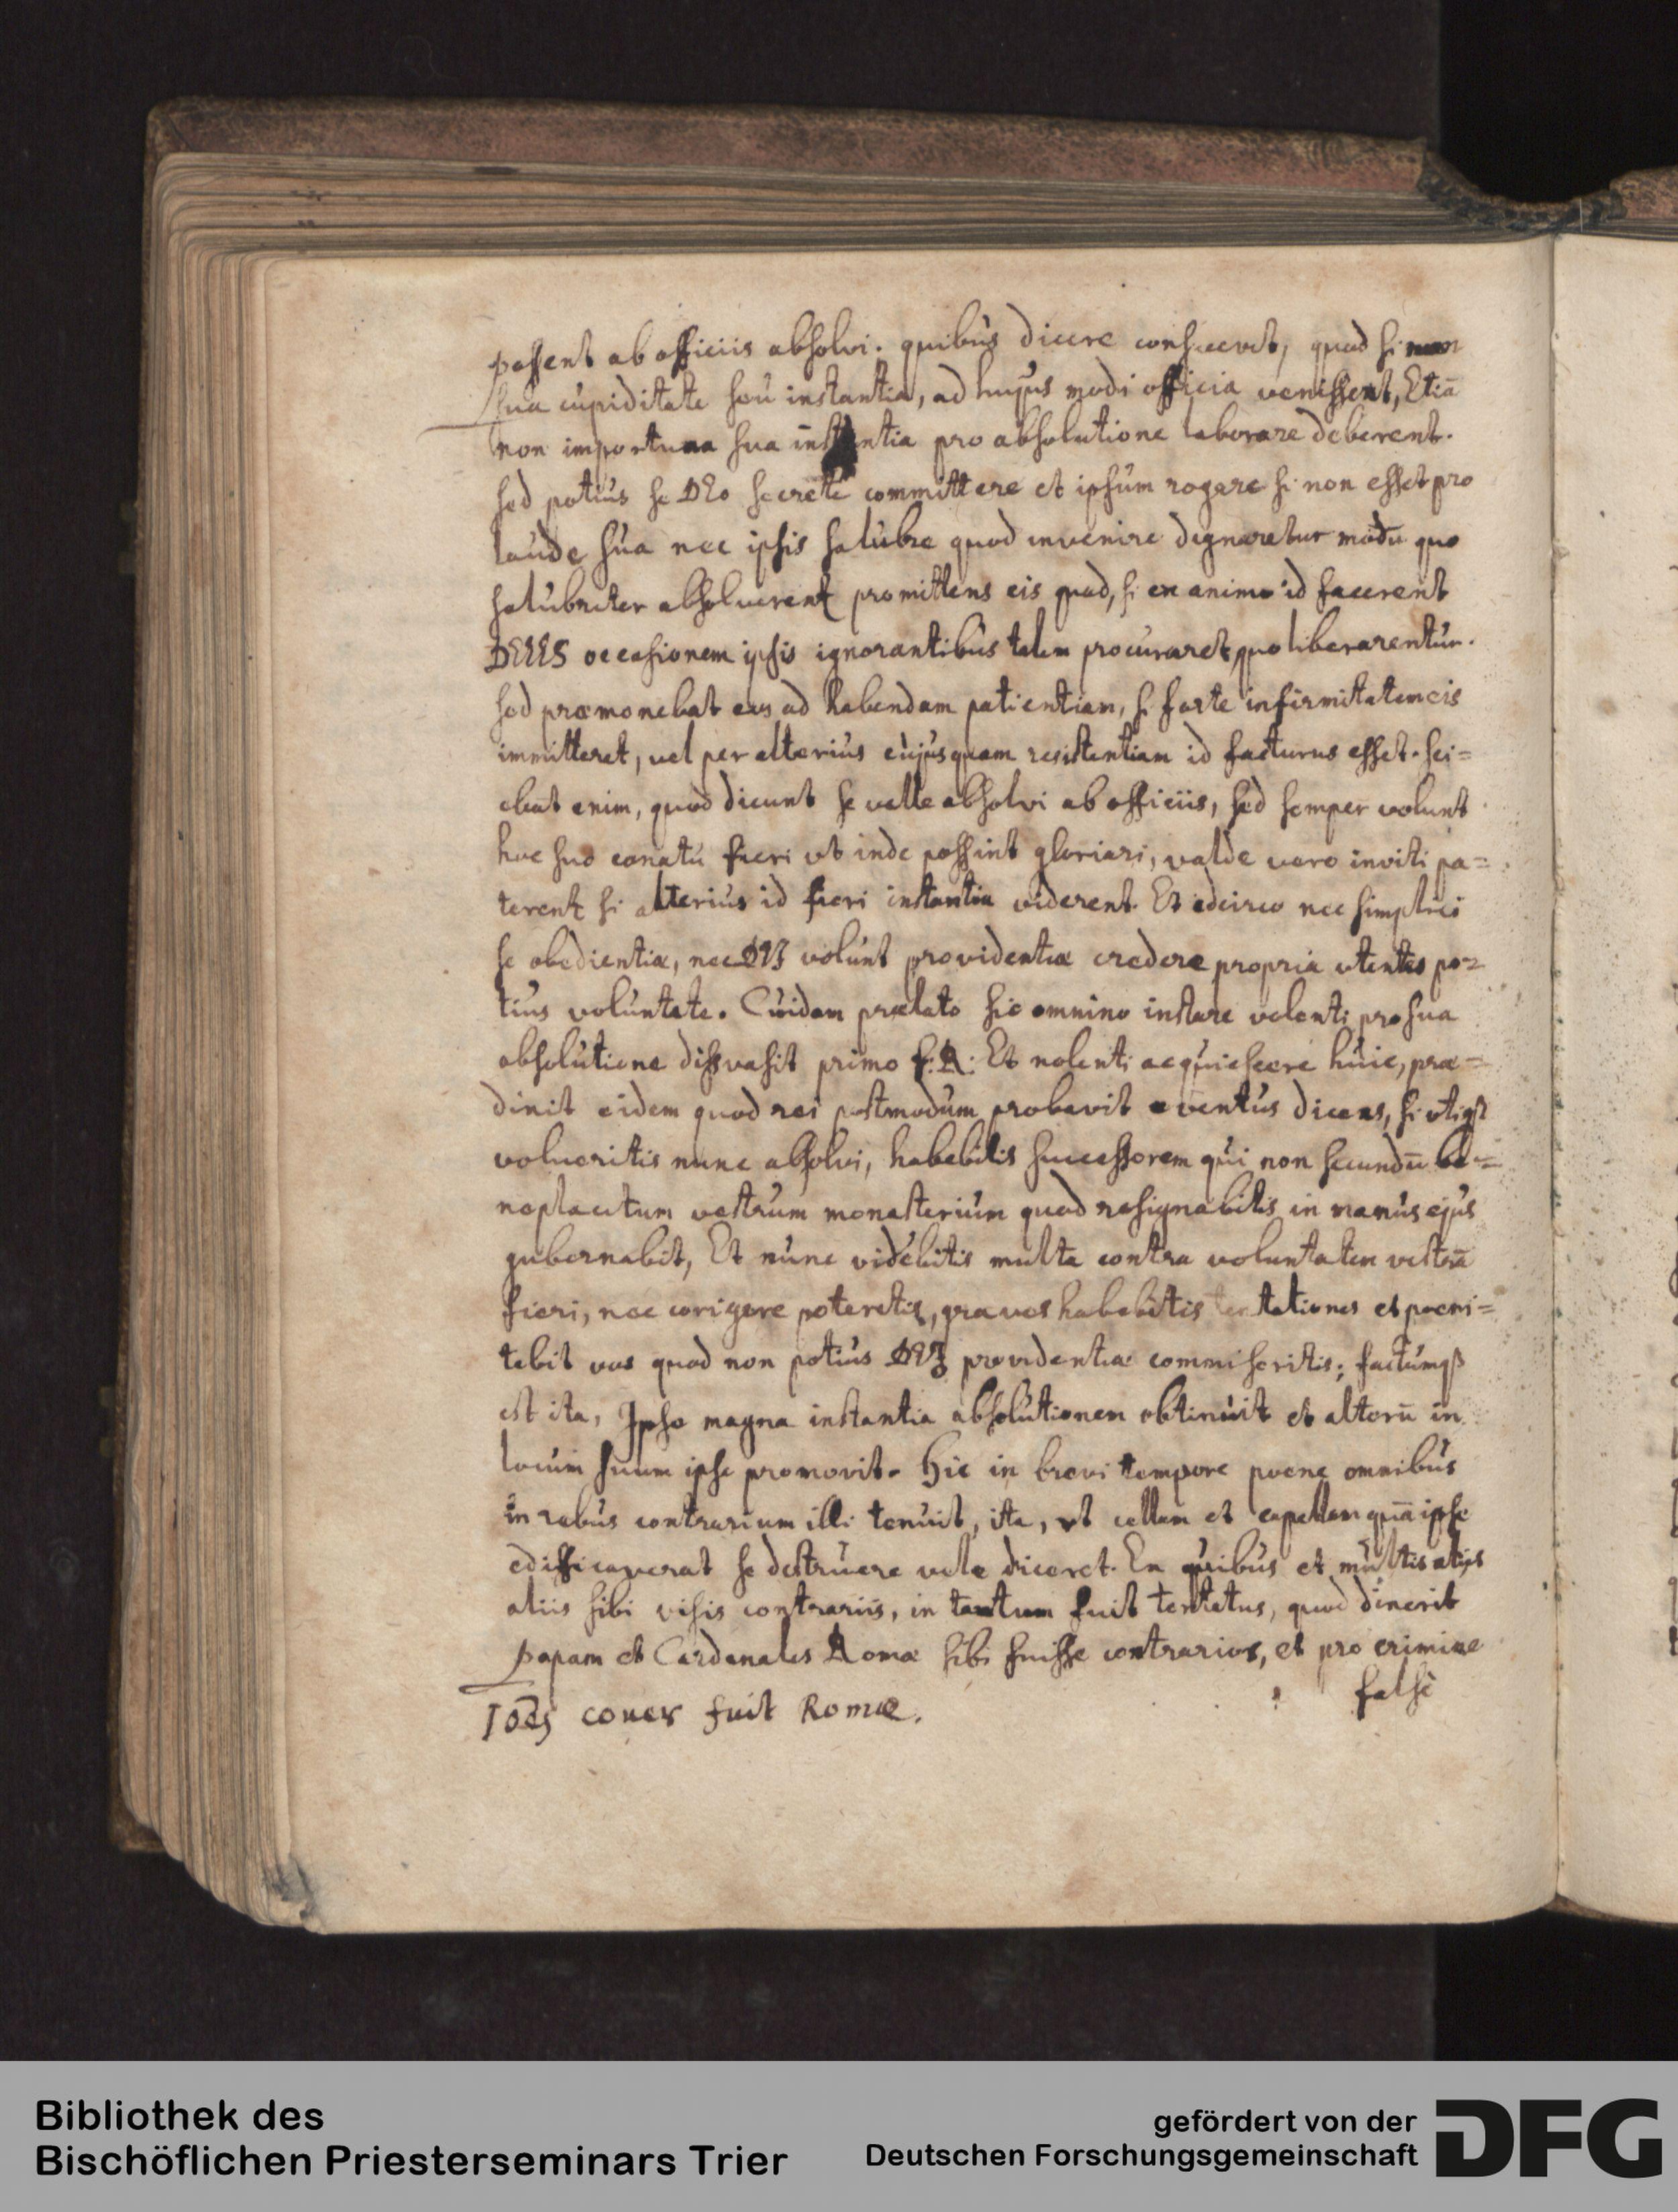 possent ab officiis absolvi. quibus dicere consuevit, quod si non
sua cupiditate seu instantia, ad hujus modi officia venissent, Etiā
non importuna sua instantia pro absolutione laborare deberent.
sed potius se DEO secrete committere et ipsum rogare si non esset pro
laude sua nec ipsis salubre quod invenire dignaretur modū quo
salubriter absolverent promittens eis quod, si ex animo id facerent
DEUS occasionem ipsis ignorantibus talem procuraret, quo liberarentur.
sed præmonebat eos ad habendam patientiam, si forte infirmitatem eis
immitteret, vel per alterius cujusquam resistentiam id facturus esset. sci=
ebat enim, quod dicunt se velle absolvi ab officiis, sed semper volunt
hoc suo conatu fieri ut inde possint gloriari, valde vero inviti pa=
terent si alterius id fieri instantia viderent. Et idcirco nec simplici
se obedientiæ, nec DEI volunt providentiæ credere propria utentes po=
tius voluntate. Cuidam prælato sic omnino instare volenti pro sua
absolutione dissvasit primo f: R: Et nolenti acquiescere huic, præ=
dixit eidem quod rei postmodum probavit eventus dicens, si utiqꝫ
volueritis nunc absolvi, habebitis successorem qui non secundū be=
neplacitum vestrum monasterium quod resignabitis in manus ejus
gubernabit, Et nunc videbitis multa contra voluntatem vestrā
fieri, nec corigere poteretis, graves habebitis tentationes et poeni=
tebit vos quod non potius DEI providentiæ commiseritis; factumqꝫ
est ita, Ipse magna instantia absolutionem obtinuit et alterū in
locum suum ipse promovit. Hic in brevi tempore poene omnibus
in rebus contrarium illi tenuit, ita, ut cellam et capellam quā ipse
edifficaverat se destruere vele diceret. Ex quibus et multis alijs
aliis sibi visis contrariis, in tantum fuit tentatus, quod dixerit
papam et Cardenales Romæ sibi fuisse contrarios, et pro crimine
false
Ioēs coues fuit Romæ.
Bibliothek des
Bischöflichen Priesterseminars Trier
gefördert von der
Deutschen Forschungsgemeinschaft
DFG